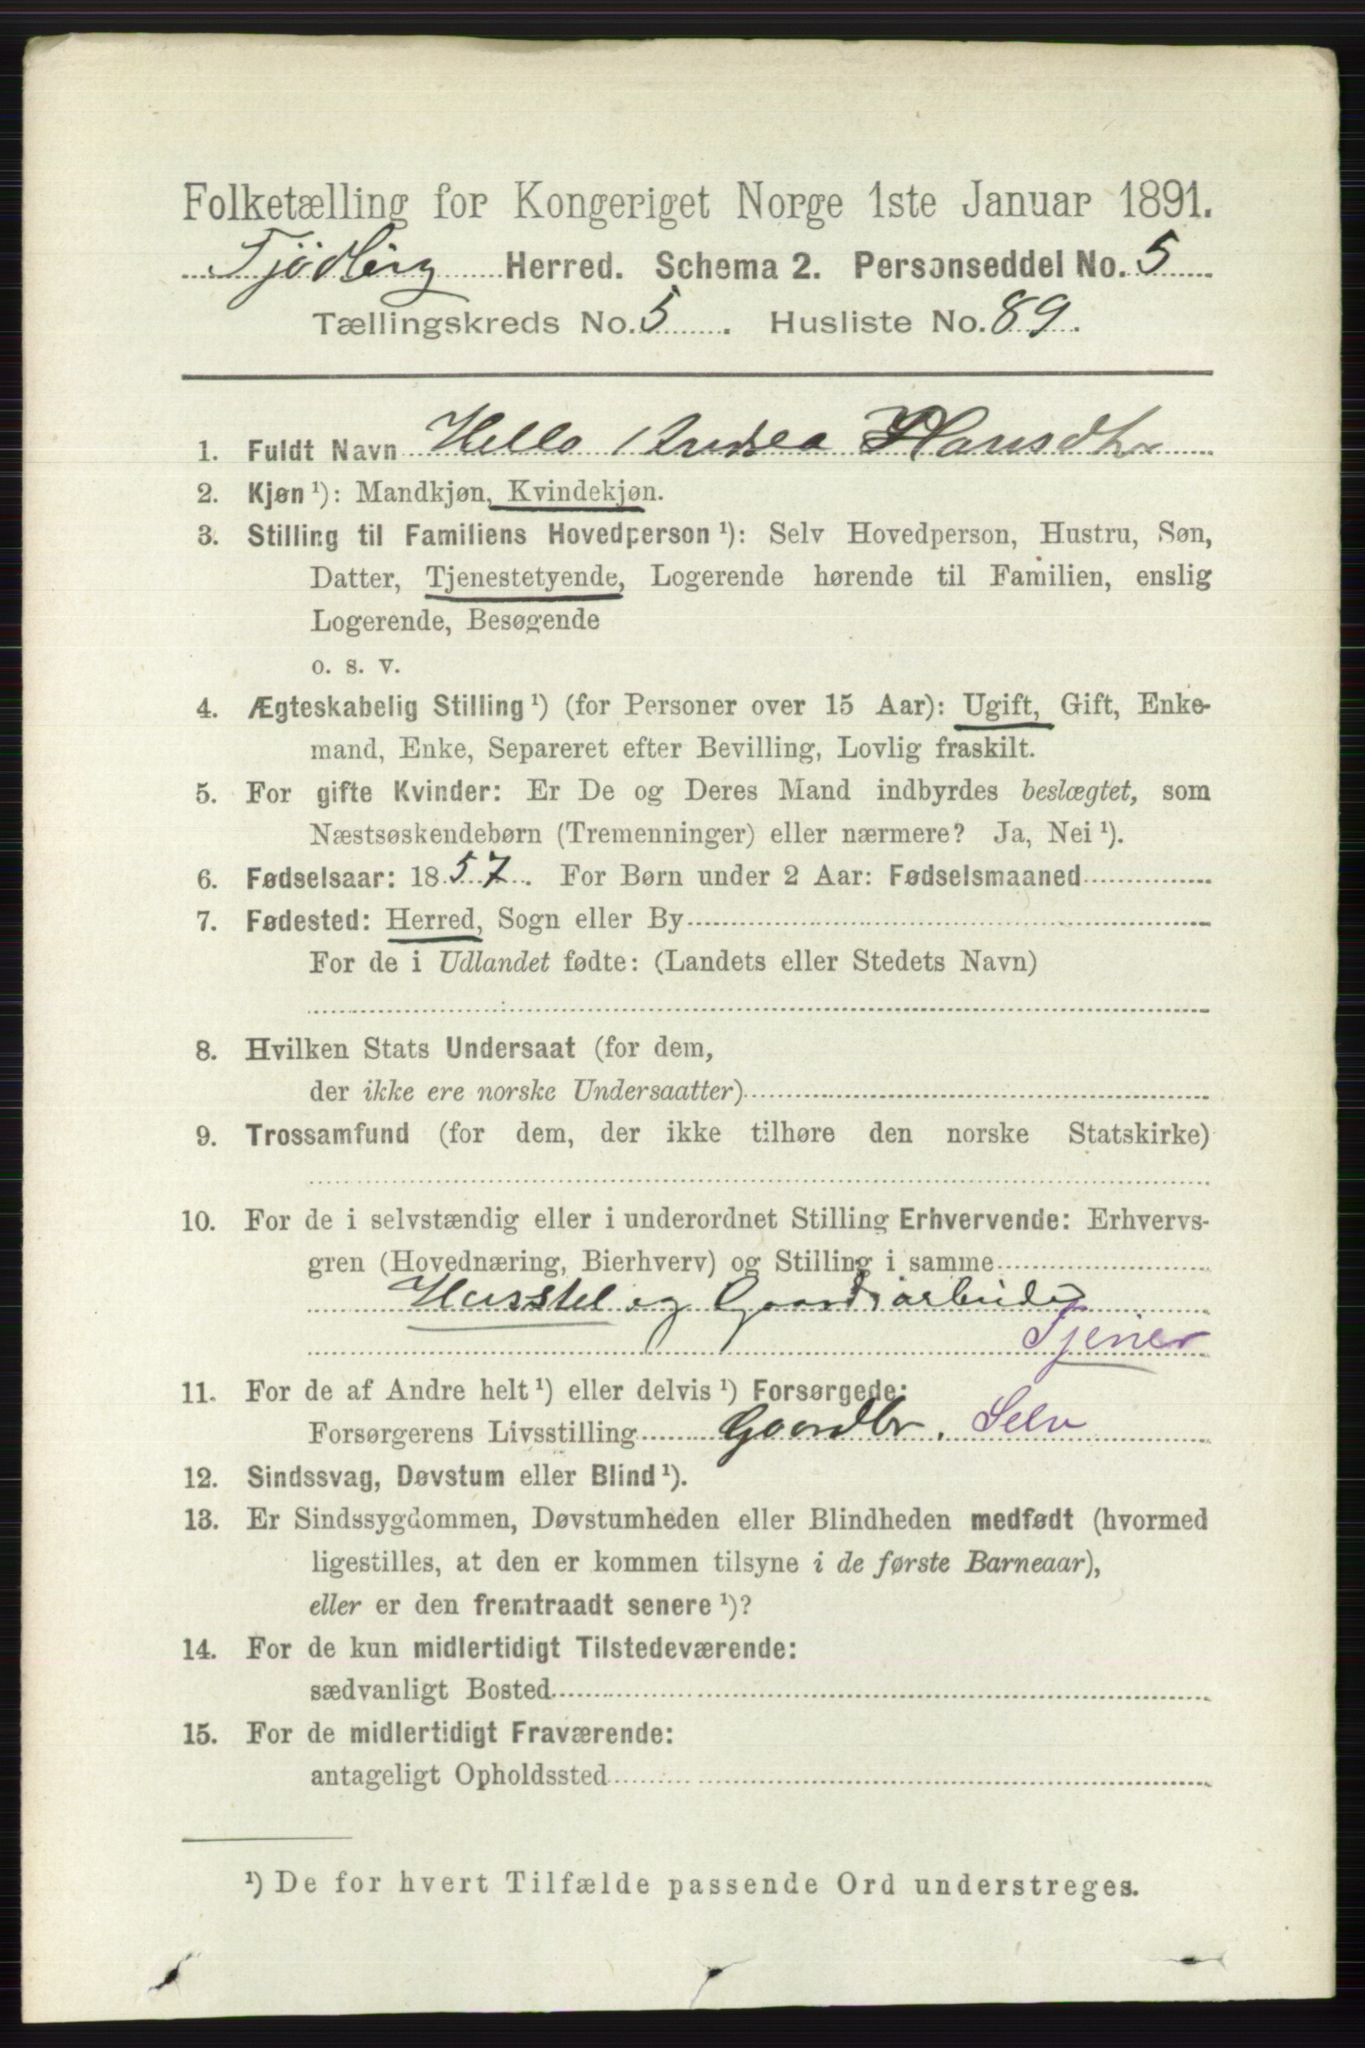 Folketælling for Kongeriget Norge 1ste Januar 1891.
Tjødling Herred. Schema 2. Personseddel No. 5
Tællingskreds No. 5. Husliste No. 89.
1. Fuldt Navn Helle Andrea Hansdtr
2. Kjøn ¹): Mandkjøn, Kvindekjøn.
3. Stilling til Familiens Hovedperson ¹): Selv Hovedperson, Hustru, Søn,
Datter, Tjenestetyende, Logerende hørende til Familien, enslig
Logerende, Besøgende
o. s. v.
4. Ægteskabelig Stilling ¹) (for Personer over 15 Aar): Ugift, Gift, Enke-
mand, Enke, Separeret efter Bevilling, Lovlig fraskilt.
5. For gifte Kvinder: Er De og Deres Mand indbyrdes beslægtet, som
Næstsøskendebørn (Tremenninger) eller nærmere? Ja, Nei ¹).
6. Fødselsaar: 1857. For Børn under 2 Aar: Fødselsmaaned
7. Fødested: Herred, Sogn eller By
For de i Udlandet fødte: (Landets eller Stedets Navn)
8. Hvilken Stats Undersaat (for dem,
der ikke ere norske Undersaatter)
9. Trossamfund (for dem, der ikke tilhøre den norske Statskirke)
10. For de i selvstændig eller i underordnet Stilling Erhvervende: Erhvervs-
gren (Hovednæring, Bierhverv) og Stilling i samme
Husstel og Gaardsarbeide
Tjener
11. For de af Andre helt ¹) eller delvis ¹) Forsørgede:
Forsørgerens Livsstilling Gaardbr. Selv
12. Sindssvag, Døvstum eller Blind ¹).
13. Er Sindssygdommen, Døvstumheden eller Blindheden medfødt (hvormed
ligestilles, at den er kommen tilsyne i de første Barneaar),
eller er den fremtraadt senere ¹)?
14. For de kun midlertidigt Tilstedeværende:
sædvanligt Bosted
15. For de midlertidigt Fraværende:
antageligt Opholdssted
¹) De for hvert Tilfælde passende Ord understreges.